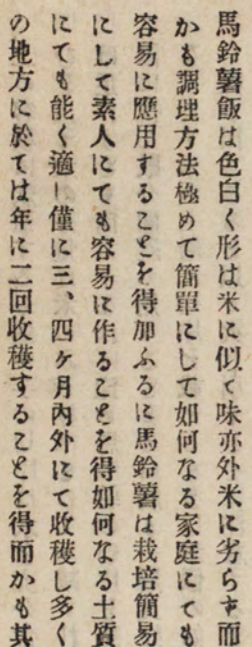 馬鈴薯飯は色白く形は米に似て味亦外米に劣らず而
かも調理方法極めて簡單にして如何なる家庭にても
容易に應用することを得加ふるに馬鈴薯は栽培簡易
にして素人にても容易に作ることを得如何なる土質
にても能く適し僅に三、四ケ月內外にて收穫し多く
の地方に於ては年に二回收穫することを得而かも其